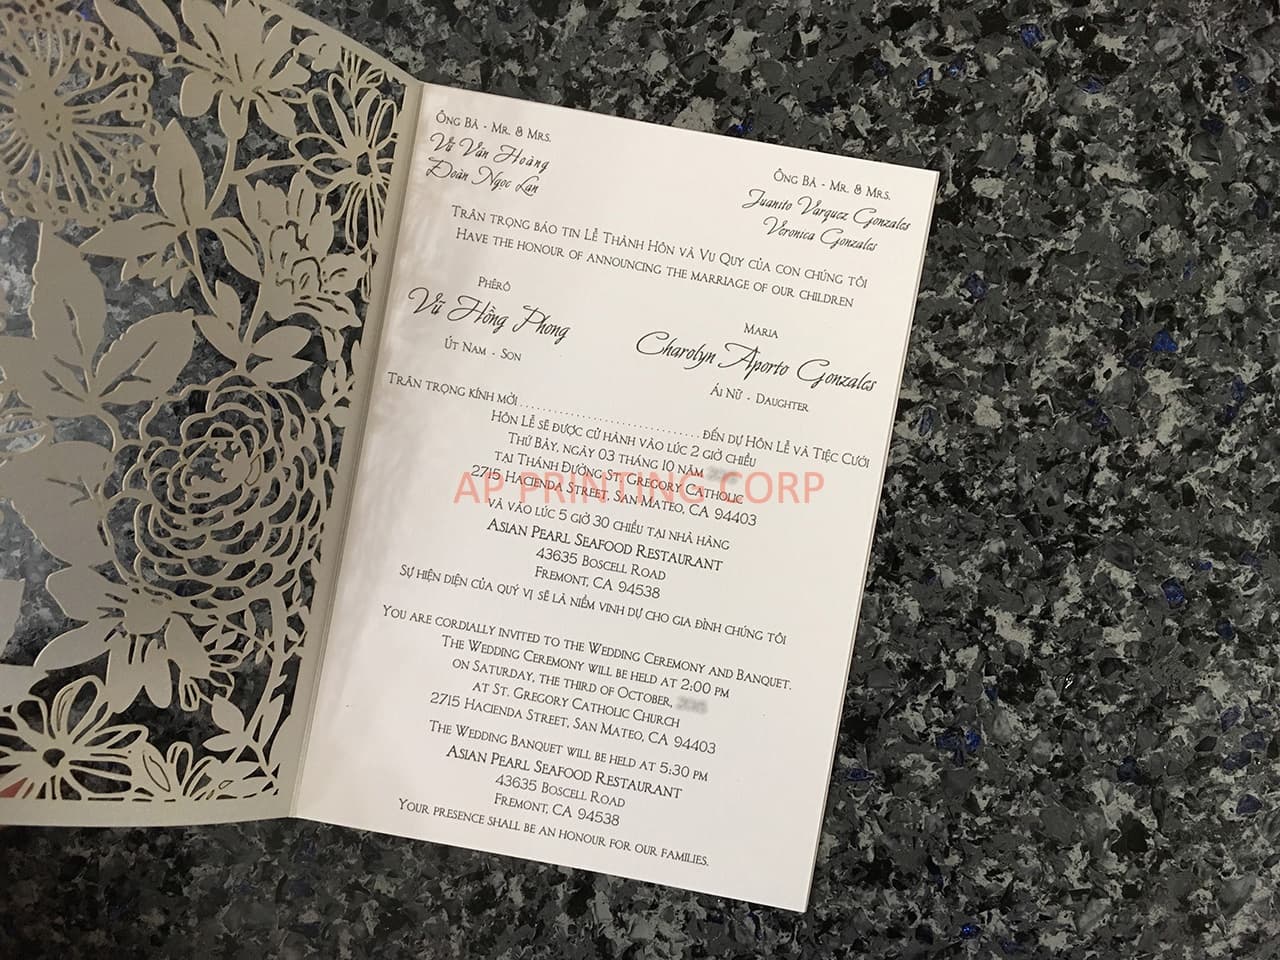 Ông Bà - Mr. & Mrs.
Vũ Văn Hoàng
Đoàn Ngọc Lan
Ông Bà - Mr. & Mrs.
Juanito Varquez Gonzales
Veronica Gonzales
Trân trọng báo tin Lễ Thành Hôn và Vu Quy của con chúng tôi
Have the honour of announcing the marriage of our children
Phêrô
Vũ Hồng Phong
Út Nam - Son
Maria
Charolyn Aporto Gonzales
Ái Nữ - Daughter
Trân trọng kính mời .................................... đến dự Hôn Lễ và Tiệc Cưới
Hôn Lễ sẽ được cử hành vào lúc 2 giờ chiều
Thứ Bảy, ngày 03 tháng 10 năm
tại Thánh Đường St. Gregory Catholic
2715 Hacienda Street, San Mateo, CA 94403
AP PRINTING CORP
và vào lúc 5 giờ 30 chiều tại nhà hàng
Asian Pearl Seafood Restaurant
43635 Boscell Road
Fremont, CA 94538
Sự hiện diện của quý vị sẽ là niềm vinh dự cho gia đình chúng tôi
You are cordially invited to the Wedding Ceremony and Banquet.
The Wedding Ceremony will be held at 2:00 pm
on Saturday, the third of October,
at St. Gregory Catholic Church
2715 Hacienda Street, San Mateo, CA 94403
The Wedding Banquet will be held at 5:30 pm
Asian Pearl Seafood Restaurant
43635 Boscell Road
Fremont, CA 94538
Your presence shall be an honour for our families.